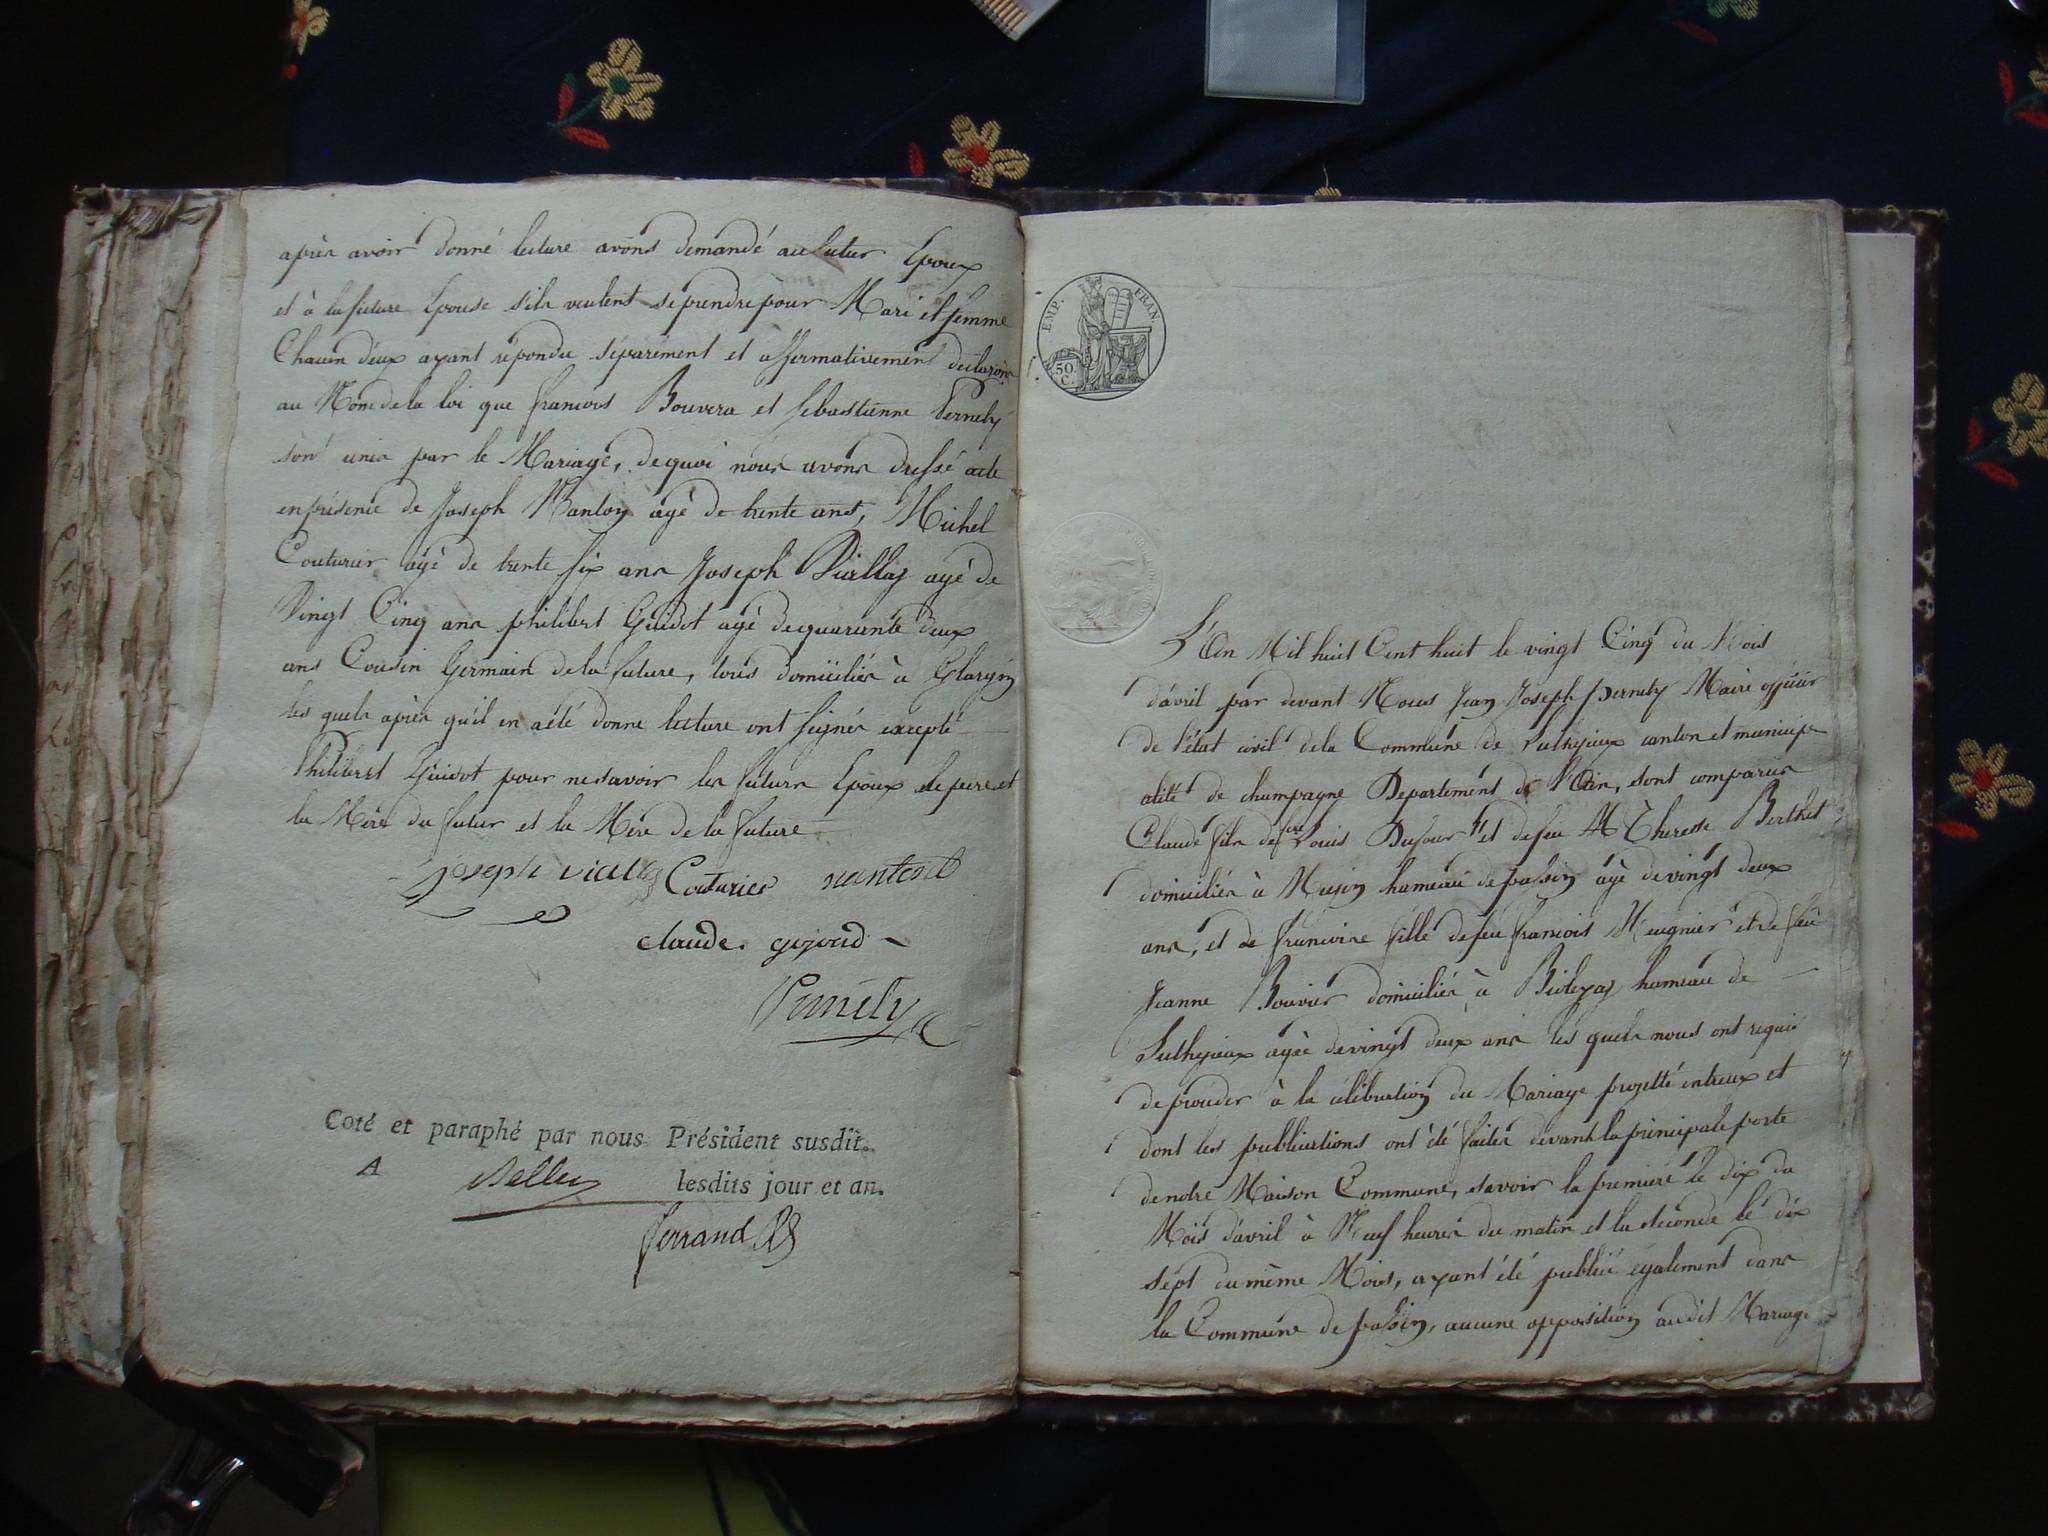 après avoir donné lecture avons demandé au futur Epoux
et à la future Epouse s'ils veulent se prendre pour Mari et femme
Chacun d'eux ayant répondu séparément et affirmativement declarons
au Nom de la loi que francois Bouvera et sebastienne Pernely
sont unis par le Mariage, de quoi nous avons dressé acte
en présence de Joseph Nanton agé de trente ans, Michel
Couturier agé de trente six ans Joseph Viallaz agé de
Vingt Cinq ans philibert Guidot agé de quarante deux
ans Cousin Germain de la future, tous domiciliés à
les quels après qu'il en a été donné lecture ont signés excepté
Philibert Guidot pour ne savoir les futurs Epoux le pere et
la Mère du futur et la Mère de la future
joseph Couturier
claude
Pernely
Coté et paraphé par nous Président susdit.
A Belley lesdits jour et an.
ferrand
EMP. FRAN.
50. C.
L'An Mil huit Cent huit le vingt Cinq du Mois
d'avril par devant Nous Jean Joseph pernely Maire officier
de l'état civil de la Commune de Suthrieux canton et municip
alité de champagne Departement de l'Ain, sont comparus
Claude fils de feu Louis Dufour et de feu M Theresse Berthet
domiciliés à Musin hameau de passin agé de vingt deux
ans, et de francoise fille de feu francois Meugnier et de feu
Jeanne Bouvier domiciliés à Bioleyaz hameau de
Suthrieux agée de vingt deux ans les quels nous ont requis
de proceder à la célébration du Mariage projetté entreux et
dont les publications ont été faites devant la principale porte
de notre Maison Commune, savoir la premiere le dix du
Mois d'avril à Neuf heures du matin et la seconde le dix
sept du même Mois, ayant été publié également dans
la Commune de passin, aucune opposition audit Mariage